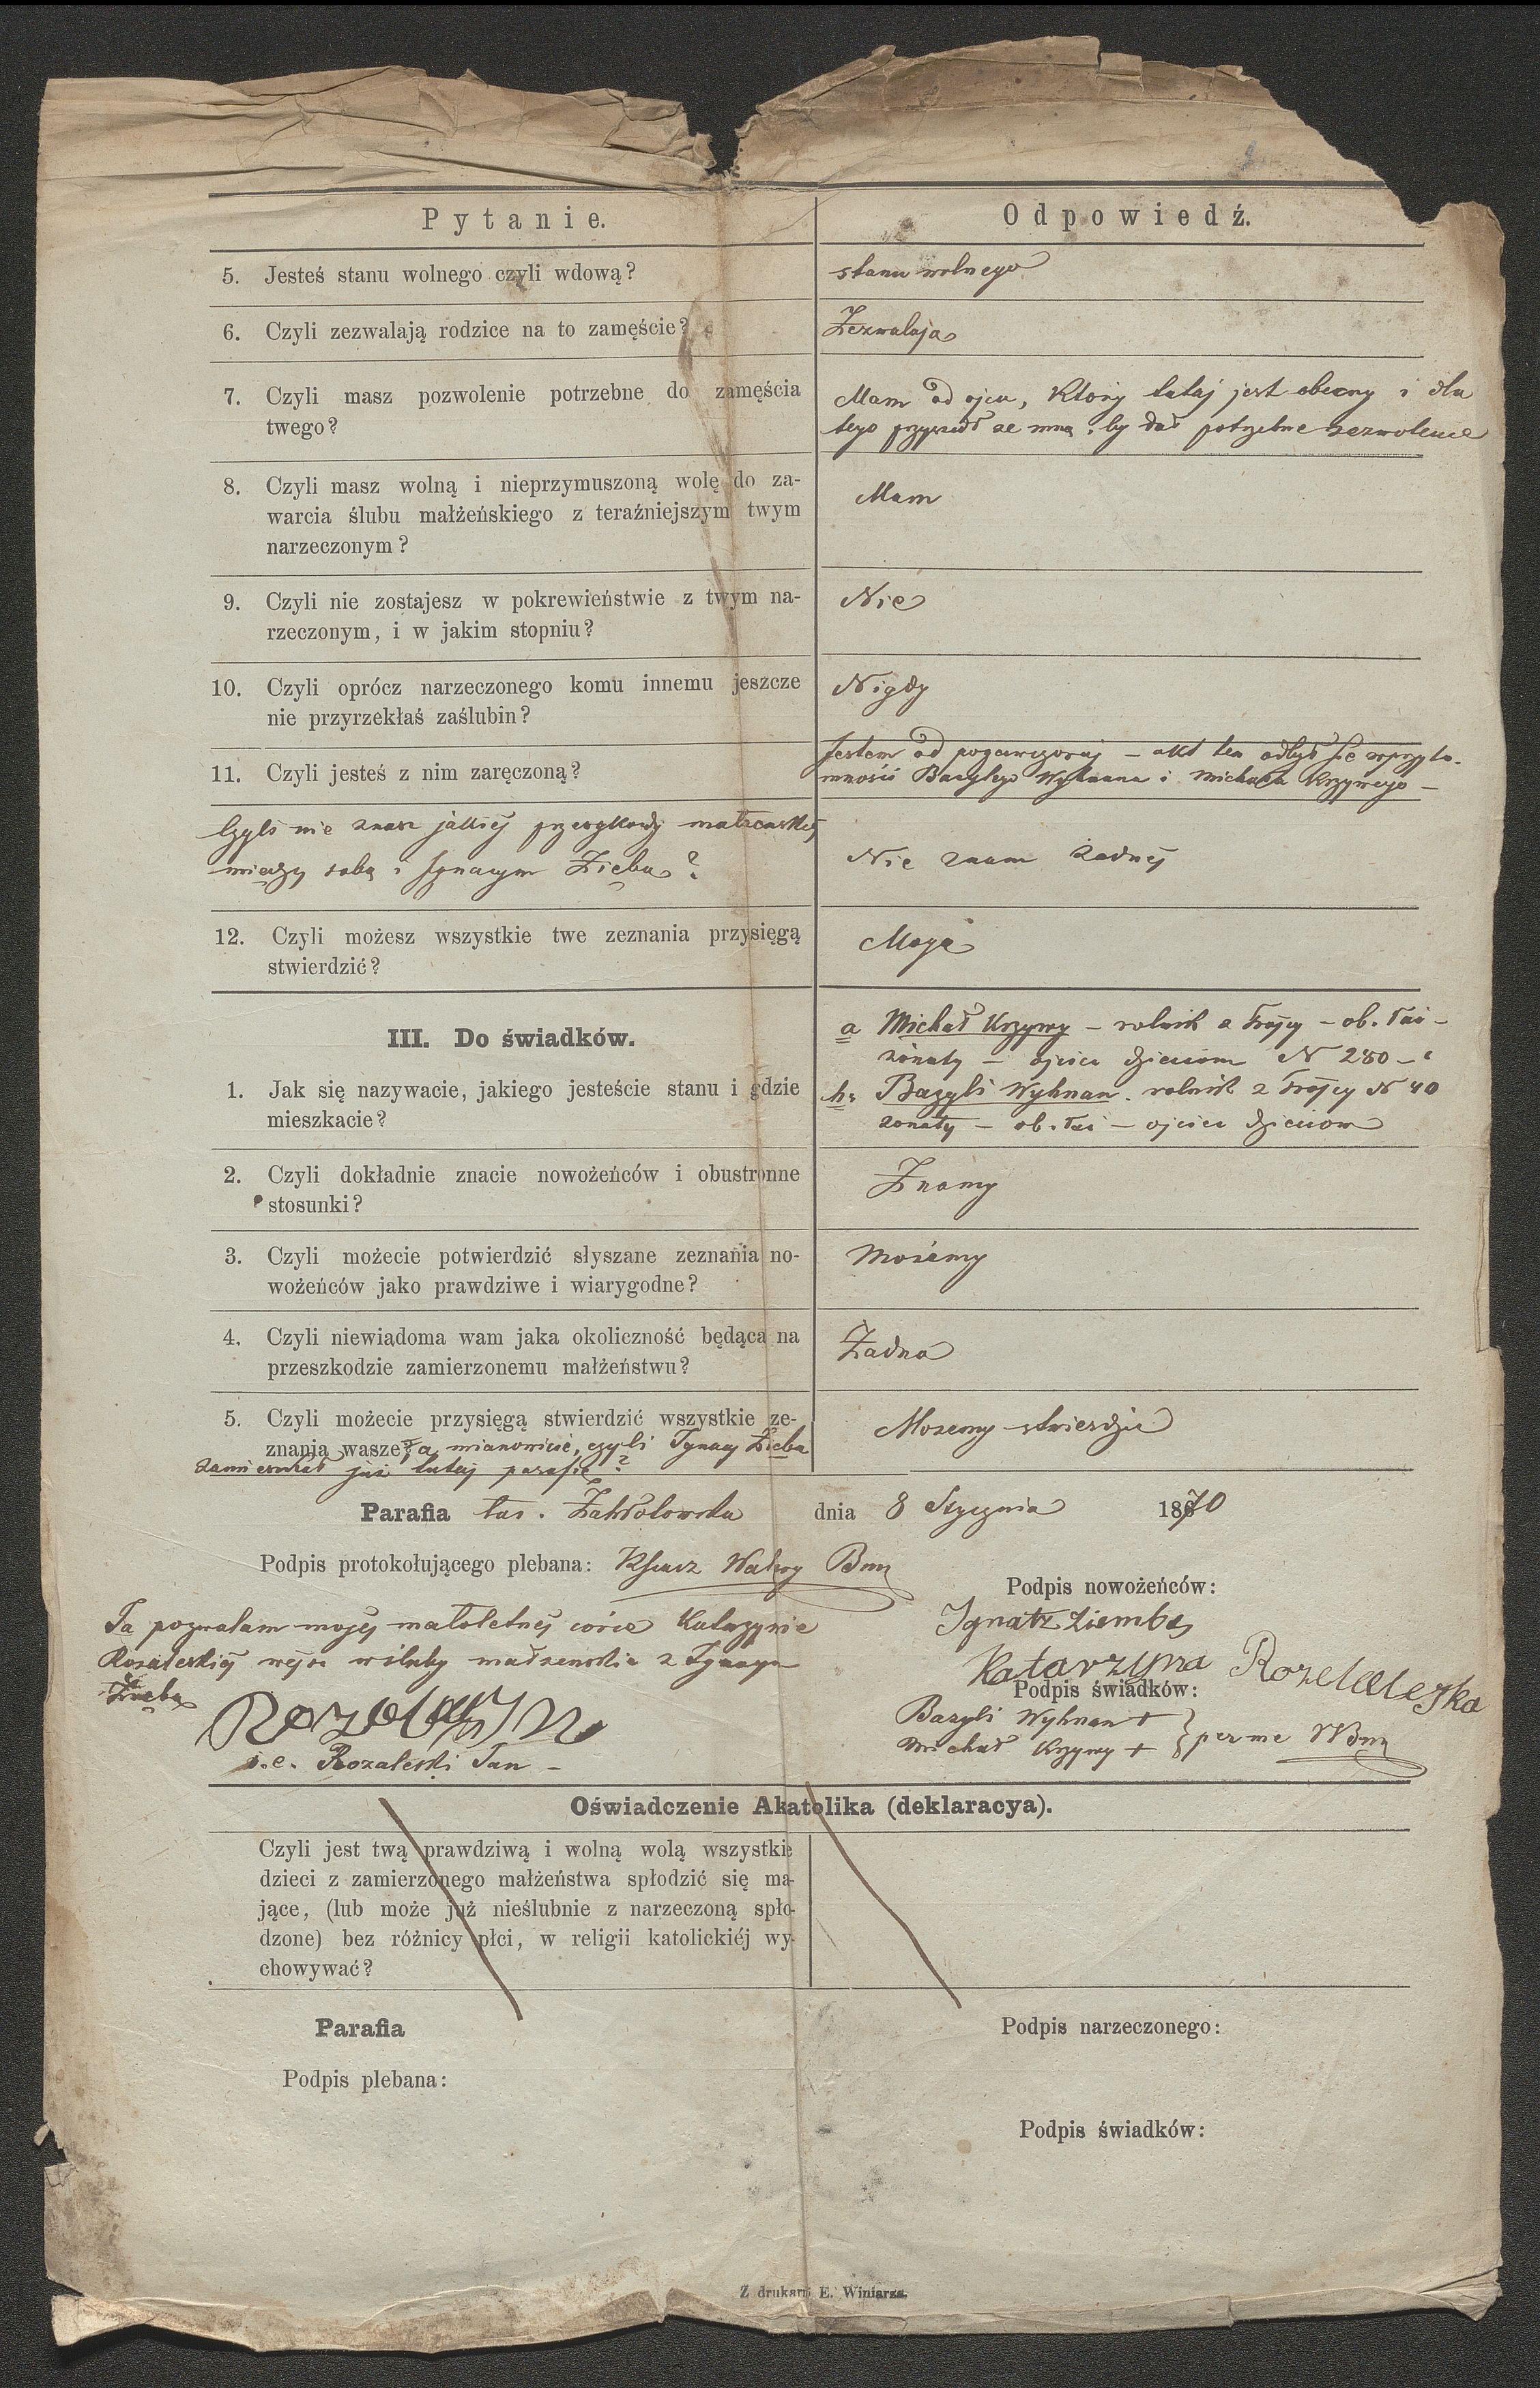 Pytanie.
Odpowiedź.
5. Jesteś stanu wolnego czyli wdową?
stanu wolnego
6. Czyli zezwalają rodzice na to zamęście?
Zezwalają
7. Czyli masz pozwolenie potrzebne do zamęścia
twego?
Mam od ojca, który tutaj jest obecny i dla
tego przyszedł ze mną, by dał potrzebne zezwolenie
8. Czyli masz wolną i nieprzymuszoną wolę do za-
warcia ślubu małżeńskiego z teraźniejszym twym
narzeczonym?
Mam
9. Czyli nie zostajesz w pokrewieństwie z twym na-
rzeczonym, i w jakim stopniu?
Nie
10. Czyli oprócz narzeczonego komu innemu jeszcze
nie przyrzekłaś zaślubin?
Nigdy
11. Czyli jesteś z nim zaręczoną?
Jestem od pozawczoraj – akt ten odbył się w przyto-
mności Bazylego Wyhnana i Michała Krzywego –
Czyli nie znasz jakiej przeszkody małżeńskiej
między sobą i Ignacym Ziębą?
Nie znam żadnej
12. Czyli możesz wszystkie twe zeznania przysięgą
stwierdzić?
Mogę
III. Do świadków.
1. Jak się nazywacie, jakiego jesteście stanu i gdzie
mieszkacie?
a Michał Krzywy – rolnik z Trójcy – ob. łać –
żonaty – ojciec dzieciom N 280 –
b. Bazyli Wyhnan. rolnik z Trójcy N 40
żonaty – ob. łać – ojciec dzieciom
2. Czyli dokładnie znacie nowożeńców i obustronne
stosunki?
Znamy
3. Czyli możecie potwierdzić słyszane zeznania no-
wożeńców jako prawdziwe i wiarygodne?
Możemy
4. Czyli niewiadoma wam jaka okoliczność będąca na
przeszkodzie zamierzonemu małżeństwu?
Żadna
5. Czyli możecie przysięgą stwierdzić wszystkie ze-
znania wasze? a mianowicie, czyli Ignacy Zięba
zamieszkał już tutaj parafię?
Możemy stwierdzić
Parafia łac. Zabłotowska dnia 8 Stycznia 1870
Podpis protokołującego plebana: Ksiądz Walery
Podpis nowożeńców:
Ja pozwalam mojej małoletnej córce Katarzynie
Rozaleskiej wejść w śluby małżeńskie z Ignacym
Ziębą
Ignatz Ziemba
Katarzyna Rozelaleska
Podpis świadków:
Bazyli Wyhnan +
Michał Krzywy +
per me
i.e. Rozaleski Jan –
Oświadczenie Akatolika (deklaracya).
Czyli jest twą prawdziwą i wolną wolą wszystkie
dzieci z zamierzonego małżeństwa spłodzić się ma-
jące, (lub może już nieślubnie z narzeczoną spło-
dzone) bez różnicy płci, w religii katolickiéj wy-
chowywać?
Parafia
Podpis narzeczonego:
Podpis plebana:
Podpis świadków:
Z drukarni E. Winiarza.